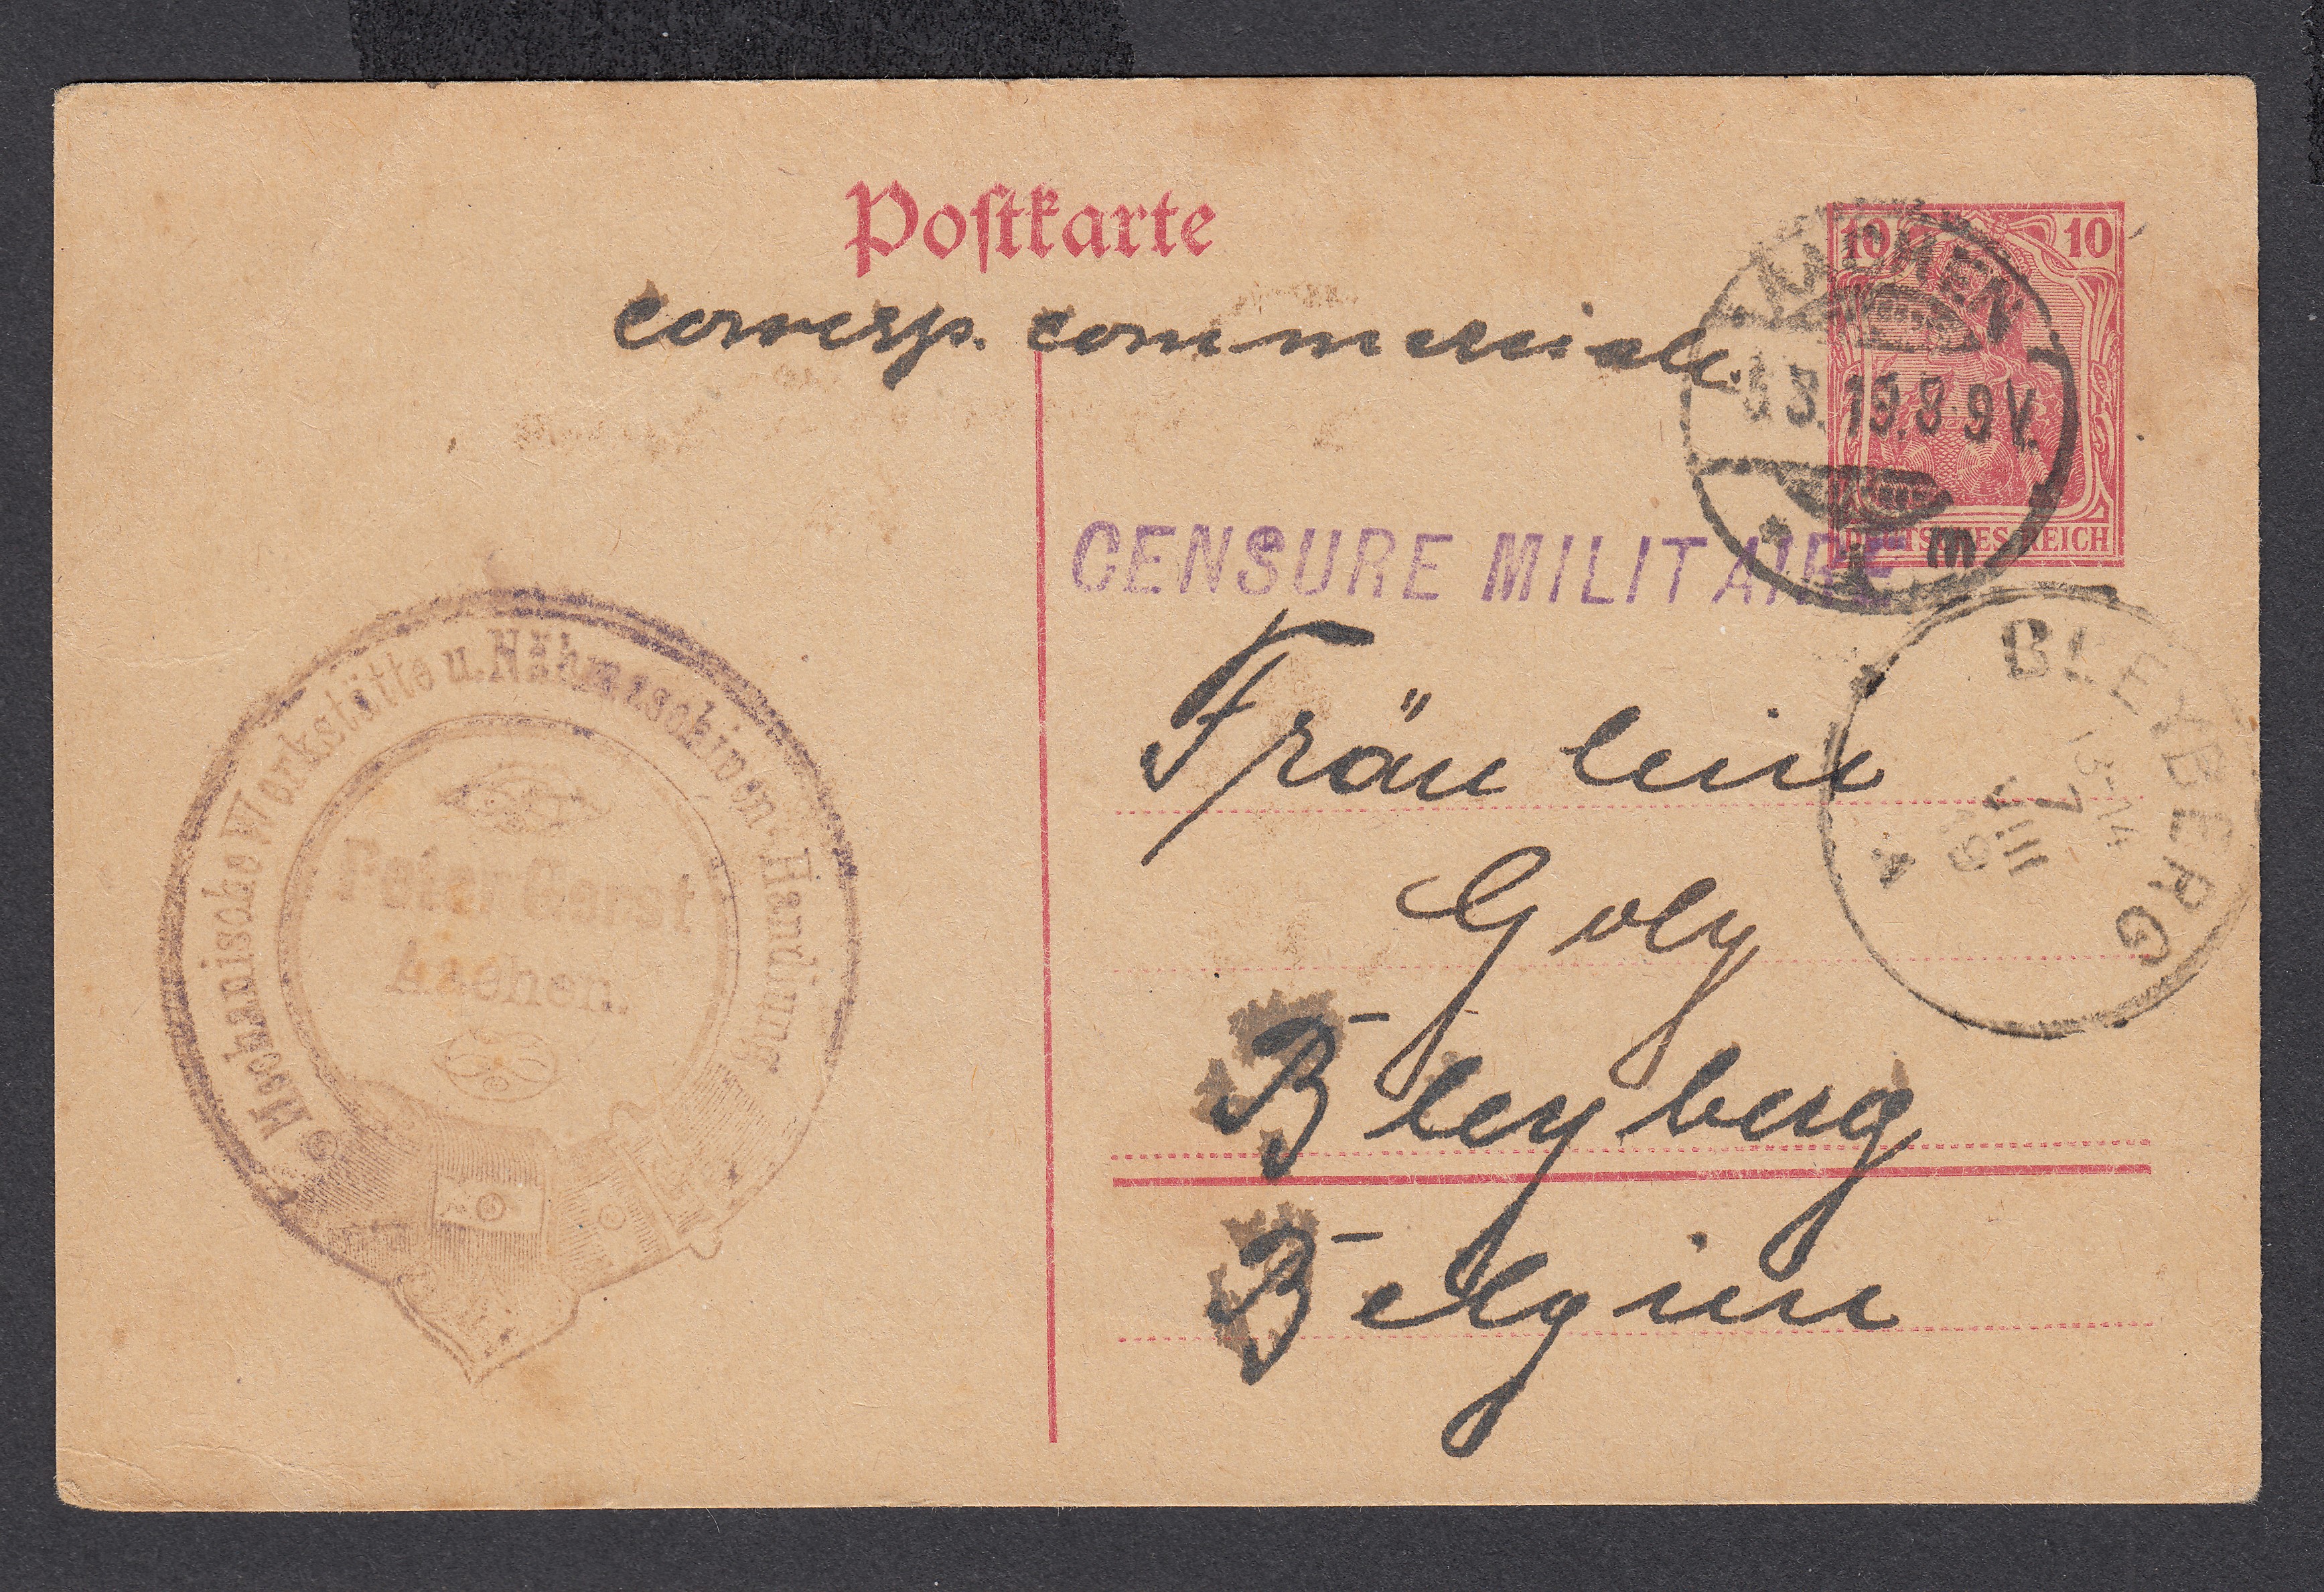 Postkarte
corresp. commerciale.
10 10
DEUTSCHES REICH
AACHEN
8.19.8-9V.
* 1 m
CENSURE MILITAIRE
BLEYBERG
13-14
7
VIII
19
Fräulein
Goly
Bleyberg
Belgien
Mechanische Werkstätte u. Nähmaschinen-Handlung
Peter
Aachen.